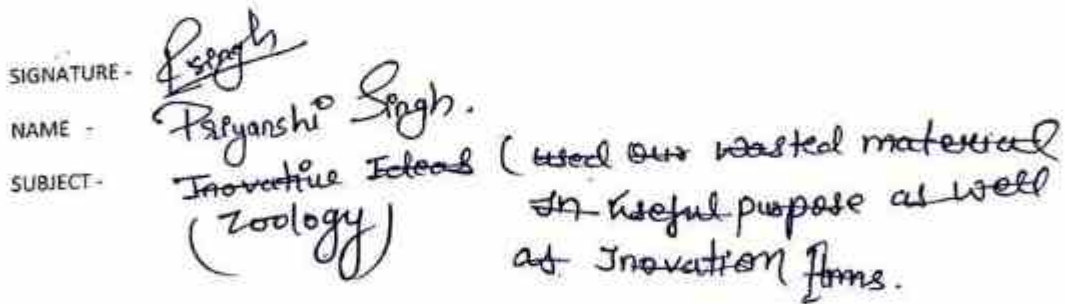 SIGNATURE - Psingh
NAME - Priyanshi Singh.
SUBJECT - Inovative Ideas (used our wasted material
(Zoology) in useful purpose as well
as Inovation